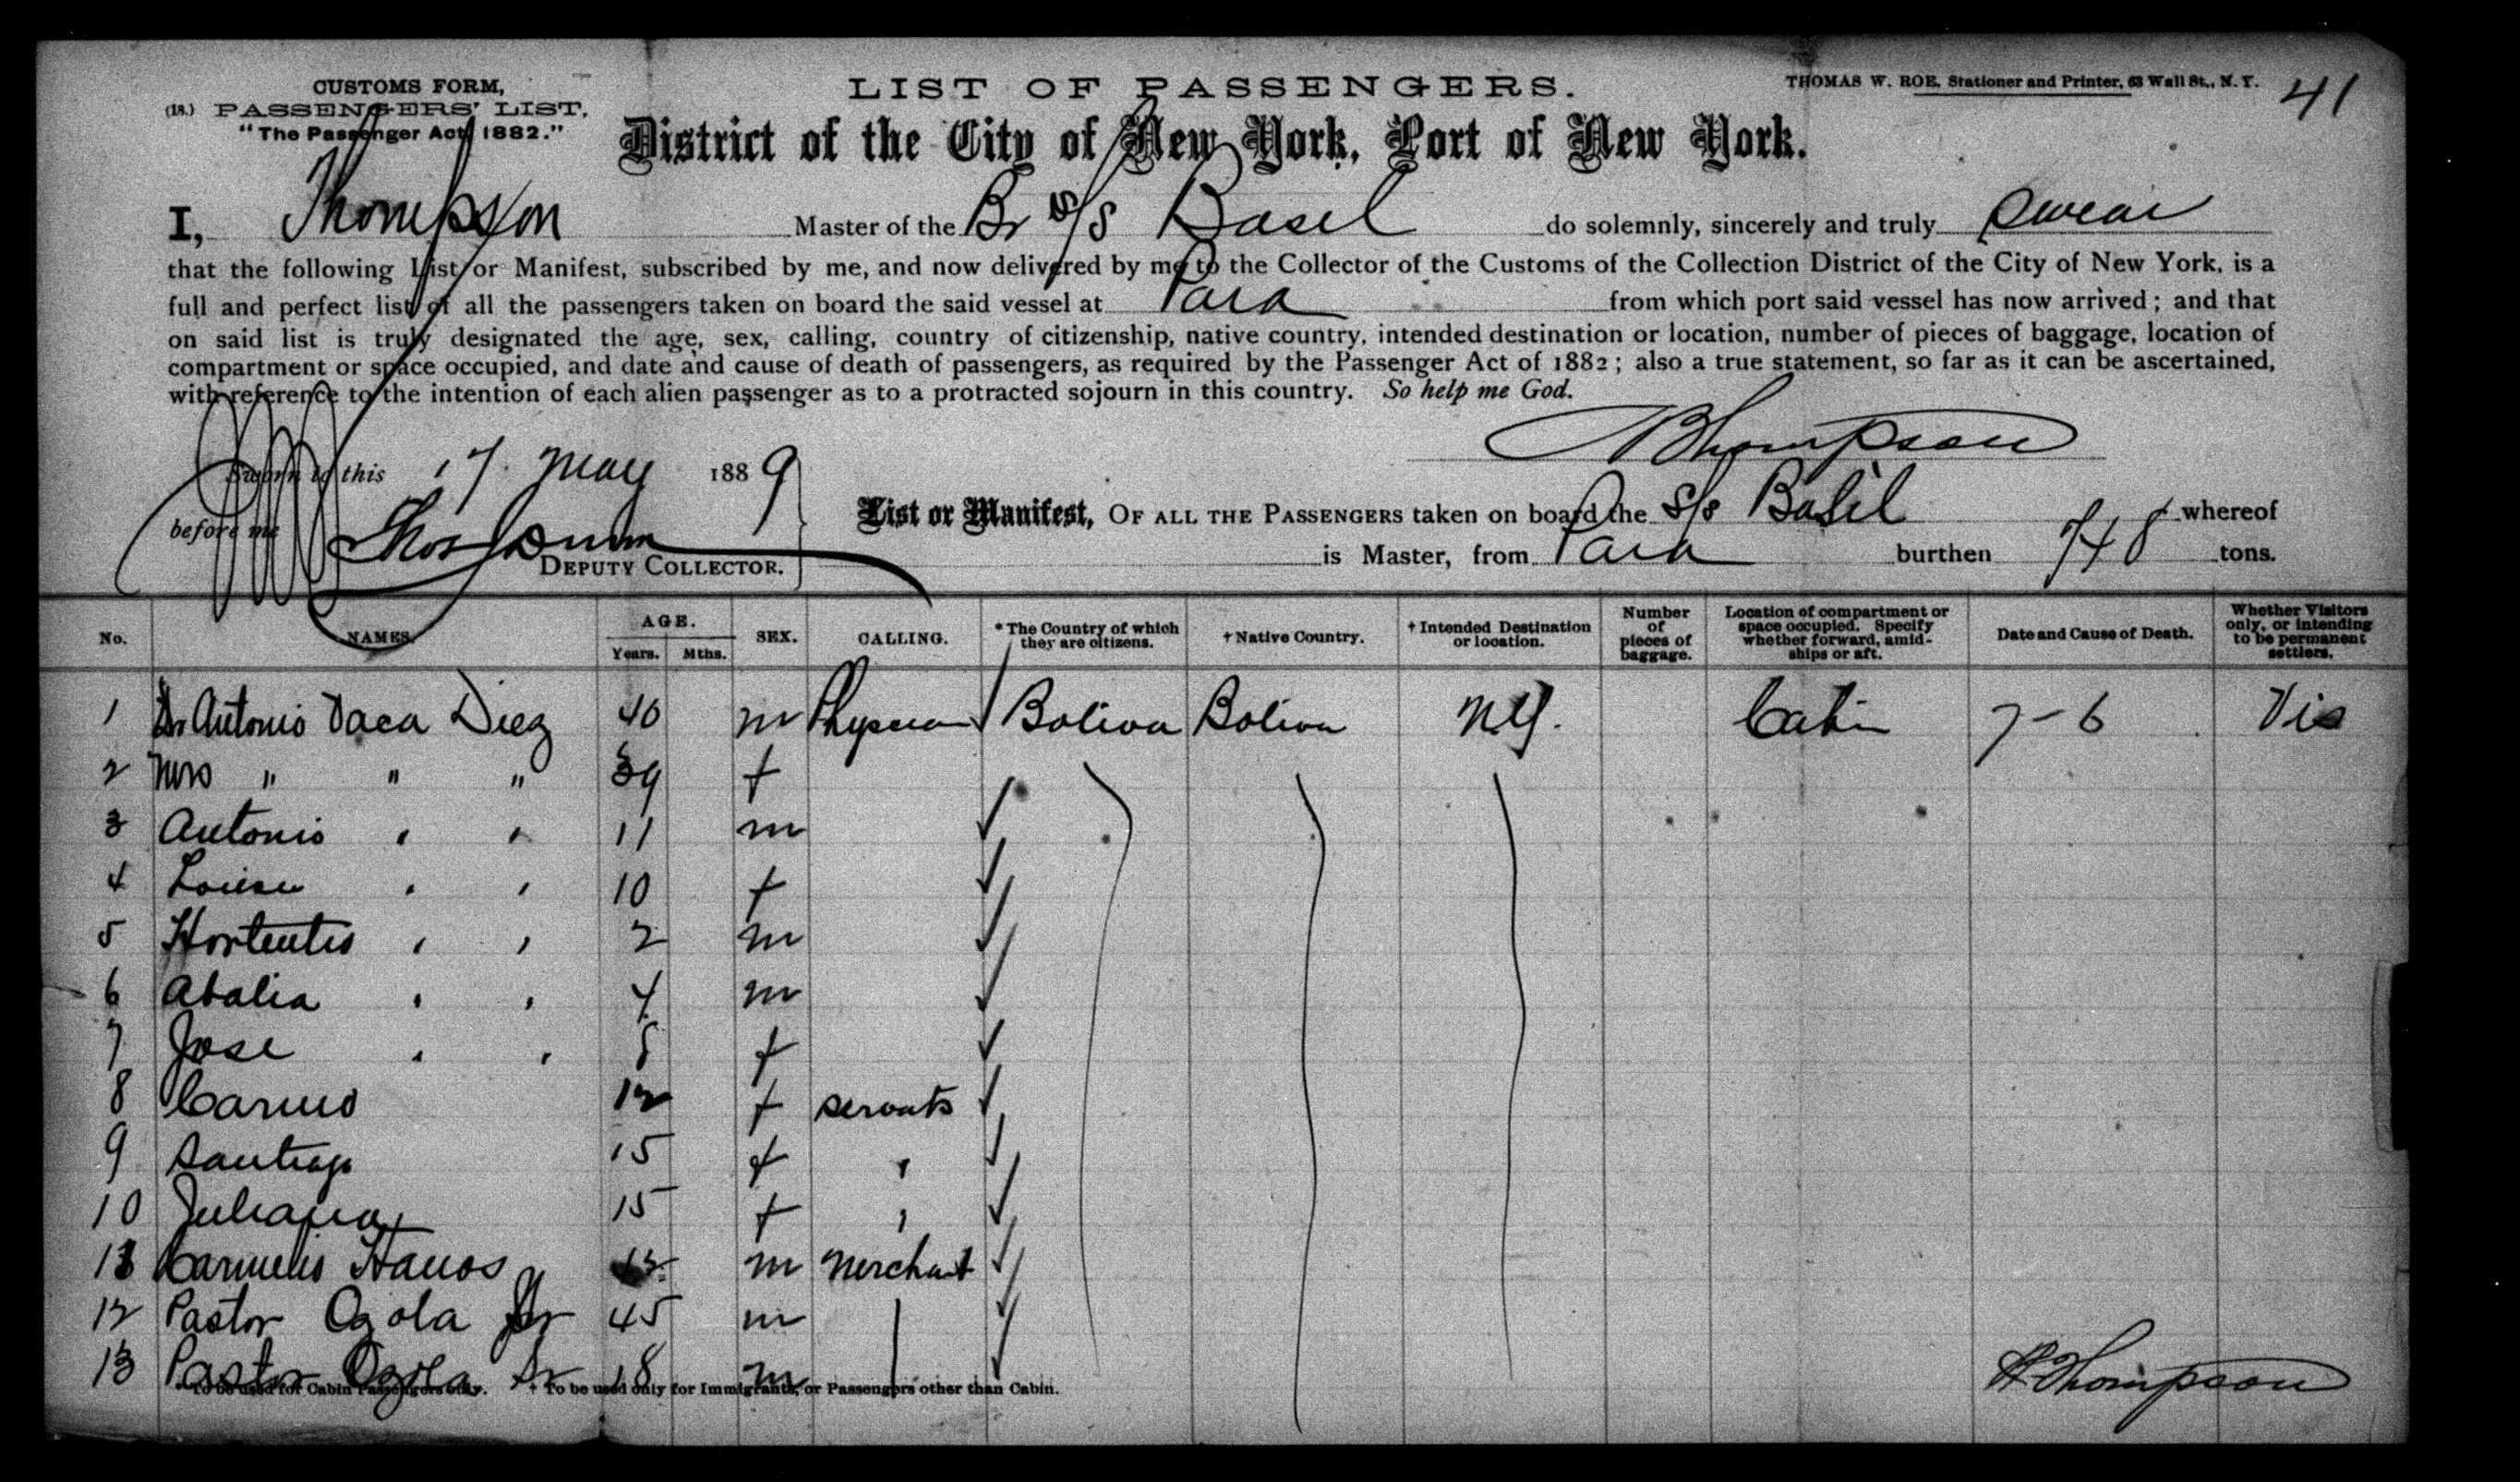 CUSTOMS FORM,
(18.) PASSENGERS' LIST,
"The Passenger Act, 1882."
LIST OF PASSENGERS.
THOMAS W. ROE, Stationer and Printer, 63 Wall St., N. Y.
41
District of the City of New York, Port of New York.
I, Thompson Master of the Br S/S Basil do solemnly, sincerely and truly swear
that the following List or Manifest, subscribed by me, and now delivered by me to the Collector of the Customs of the Collection District of the City of New York, is a
full and perfect list of all the passengers taken on board the said vessel at Para from which port said vessel has now arrived; and that
on said list is truly designated the age, sex, calling, country of citizenship, native country, intended destination or location, number of pieces of baggage, location of
compartment or space occupied, and date and cause of death of passengers, as required by the Passenger Act of 1882; also a true statement, so far as it can be ascertained,
with reference to the intention of each alien passenger as to a protracted sojourn in this country. So help me God.
Thompson
Sworn to this 17 May 1889
before me Thos Dunn
DEPUTY COLLECTOR.
List or Manifest, OF ALL THE PASSENGERS taken on board the S/S Basil whereof
is Master, from Para burthen 748 tons.
No. NAMES. AGE. Years. Mths. SEX. CALLING. * The Country of which they are citizens. † Native Country. † Intended Destination or location. Number of pieces of baggage. Location of compartment or space occupied. Specify whether forward, amidships or aft. Date and Cause of Death. Whether Visitors only, or intending to be permanent settlers.
1 Dr Antonio Vaca Diez 40 m Physician Boliva Boliva N.Y. Cabin 7-6 Vis
2 Mrs " " " 39 f
3 Antonio " " 11 m
4 Louisa " " 10 f
5 " " 2 m
6 Abalia " " 4 m
7 Jose " " 5 f
8 12 f servants
9 Santiago 15 f "
10 Juliana 15 f "
13 m Merchant
12 Pastor Ozola Jr 45 m
13 Pastor Ozola Sr 18 m
* To be used for Cabin Passengers only. † To be used only for Immigrants, or Passengers other than Cabin.
Thompson